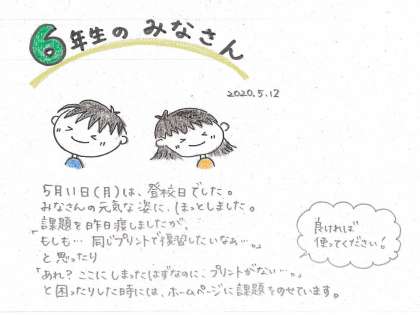 6年生のみなさん
2020.5.12
5月11日(月)は、登校日でした。
みなさんの元気な姿に、ほっとしました。
課題を昨日渡しましたが、
「もしも… 同じプリントで復習したいなぁ…。」
と思ったり
「あれ？ここにしまったはずなのに、プリントがない…。」
と困ったりした時には、ホームページに課題をのせています。
良ければ
使ってください！